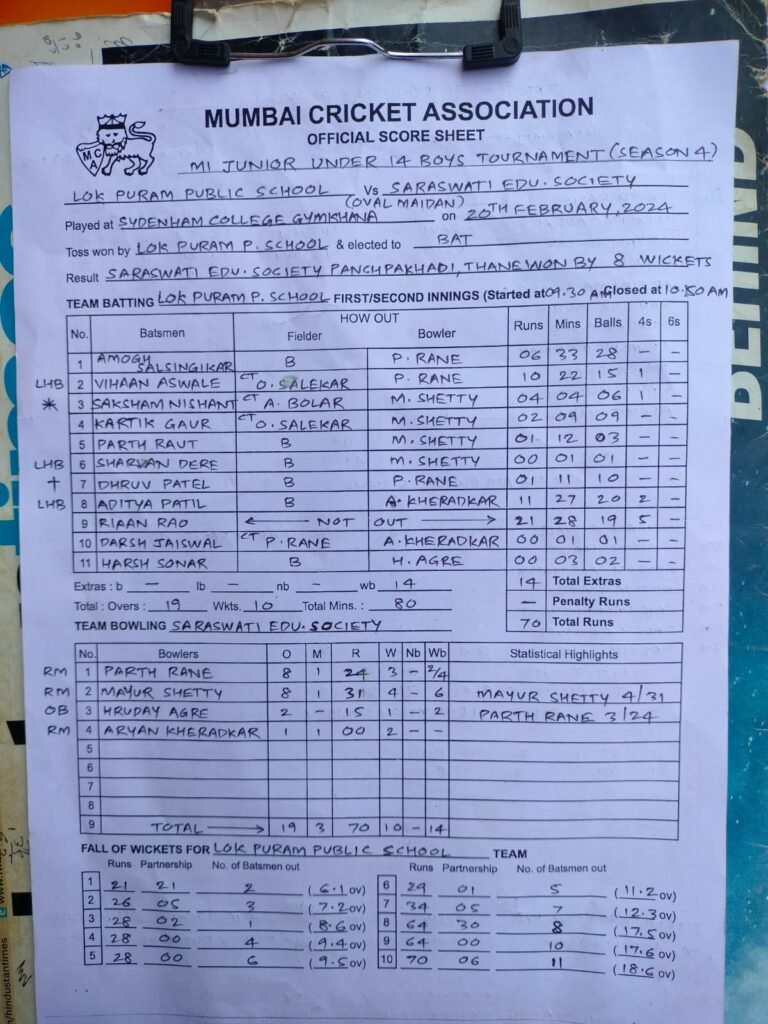 MUMBAI CRICKET ASSOCIATION
OFFICIAL SCORE SHEET
MCA
MI JUNIOR UNDER 14 BOYS TOURNAMENT (SEASON 4)
LOK PURAM PUBLIC SCHOOL Vs SARASWATI EDU. SOCIETY
(OVAL MAIDAN)
Played at SYDENHAM COLLEGE GYMKHANA on 20TH FEBRUARY, 2024
Toss won by LOK PURAM P. SCHOOL & elected to BAT
Result SARASWATI EDU. SOCIETY PANCHPAKHADI, THANE WON BY 8 WICKETS
TEAM BATTING LOK PURAM P. SCHOOL FIRST/SECOND INNINGS (Started at 09.30 AM Closed at 10.50 AM
No. Batsmen HOW OUT Fielder Bowler Runs Mins Balls 4s 6s
1 AMOGH SALSINGIKAR B P. RANE 06 33 28 - -
LHB 2 VIHAAN ASWALE CT O. SALEKAR P. RANE 10 22 15 1 -
* 3 SAKSHAM NISHANT CT A. BOLAR M. SHETTY 04 04 06 1 -
4 KARTIK GAUR CT O. SALEKAR M. SHETTY 02 09 09 - -
5 PARTH RAUT B M. SHETTY 01 12 03 - -
LHB 6 SHARVAN DERE B M. SHETTY 00 01 01 - -
† 7 DHRUV PATEL B P. RANE 01 11 10 - -
LHB 8 ADITYA PATIL B A. KHERADKAR 11 27 20 2 -
9 RIAAN RAO ← NOT OUT → 21 28 19 5 -
10 DARSH JAISWAL CT P. RANE A. KHERADKAR 00 01 01 - -
11 HARSH SONAR B H. AGRE 00 03 02 - -
Extras : b - lb - nb - wb 14 14 Total Extras
Total : Overs : 19 Wkts. 10 Total Mins. : 80 - Penalty Runs
TEAM BOWLING SARASWATI EDU. SOCIETY 70 Total Runs
No. Bowlers O M R W Nb Wb Statistical Highlights
RM 1 PARTH RANE 8 1 24 3 - 2/4
RM 2 MAYUR SHETTY 8 1 31 4 - 6 MAYUR SHETTY 4/31
OB 3 HRUDAY AGRE 2 - 15 1 - 2 PARTH RANE 3/24
RM 4 ARYAN KHERADKAR 1 1 00 2 - -
5
6
7
8
9 TOTAL → 19 3 70 10 - 14
FALL OF WICKETS FOR LOK PURAM PUBLIC SCHOOL TEAM
Runs Partnership No. of Batsmen out Runs Partnership No. of Batsmen out
1 21 21 2 (6.1 ov) 6 29 01 5 (11.2 ov)
2 26 05 3 (7.2 ov) 7 34 05 7 (12.3 ov)
3 28 02 1 (8.6 ov) 8 64 30 8 (17.5 ov)
4 28 00 4 (9.4 ov) 9 64 00 10 (17.6 ov)
5 28 00 6 (9.5 ov) 10 70 06 11 (18.6 ov)
BEHIND
/hindustantimes